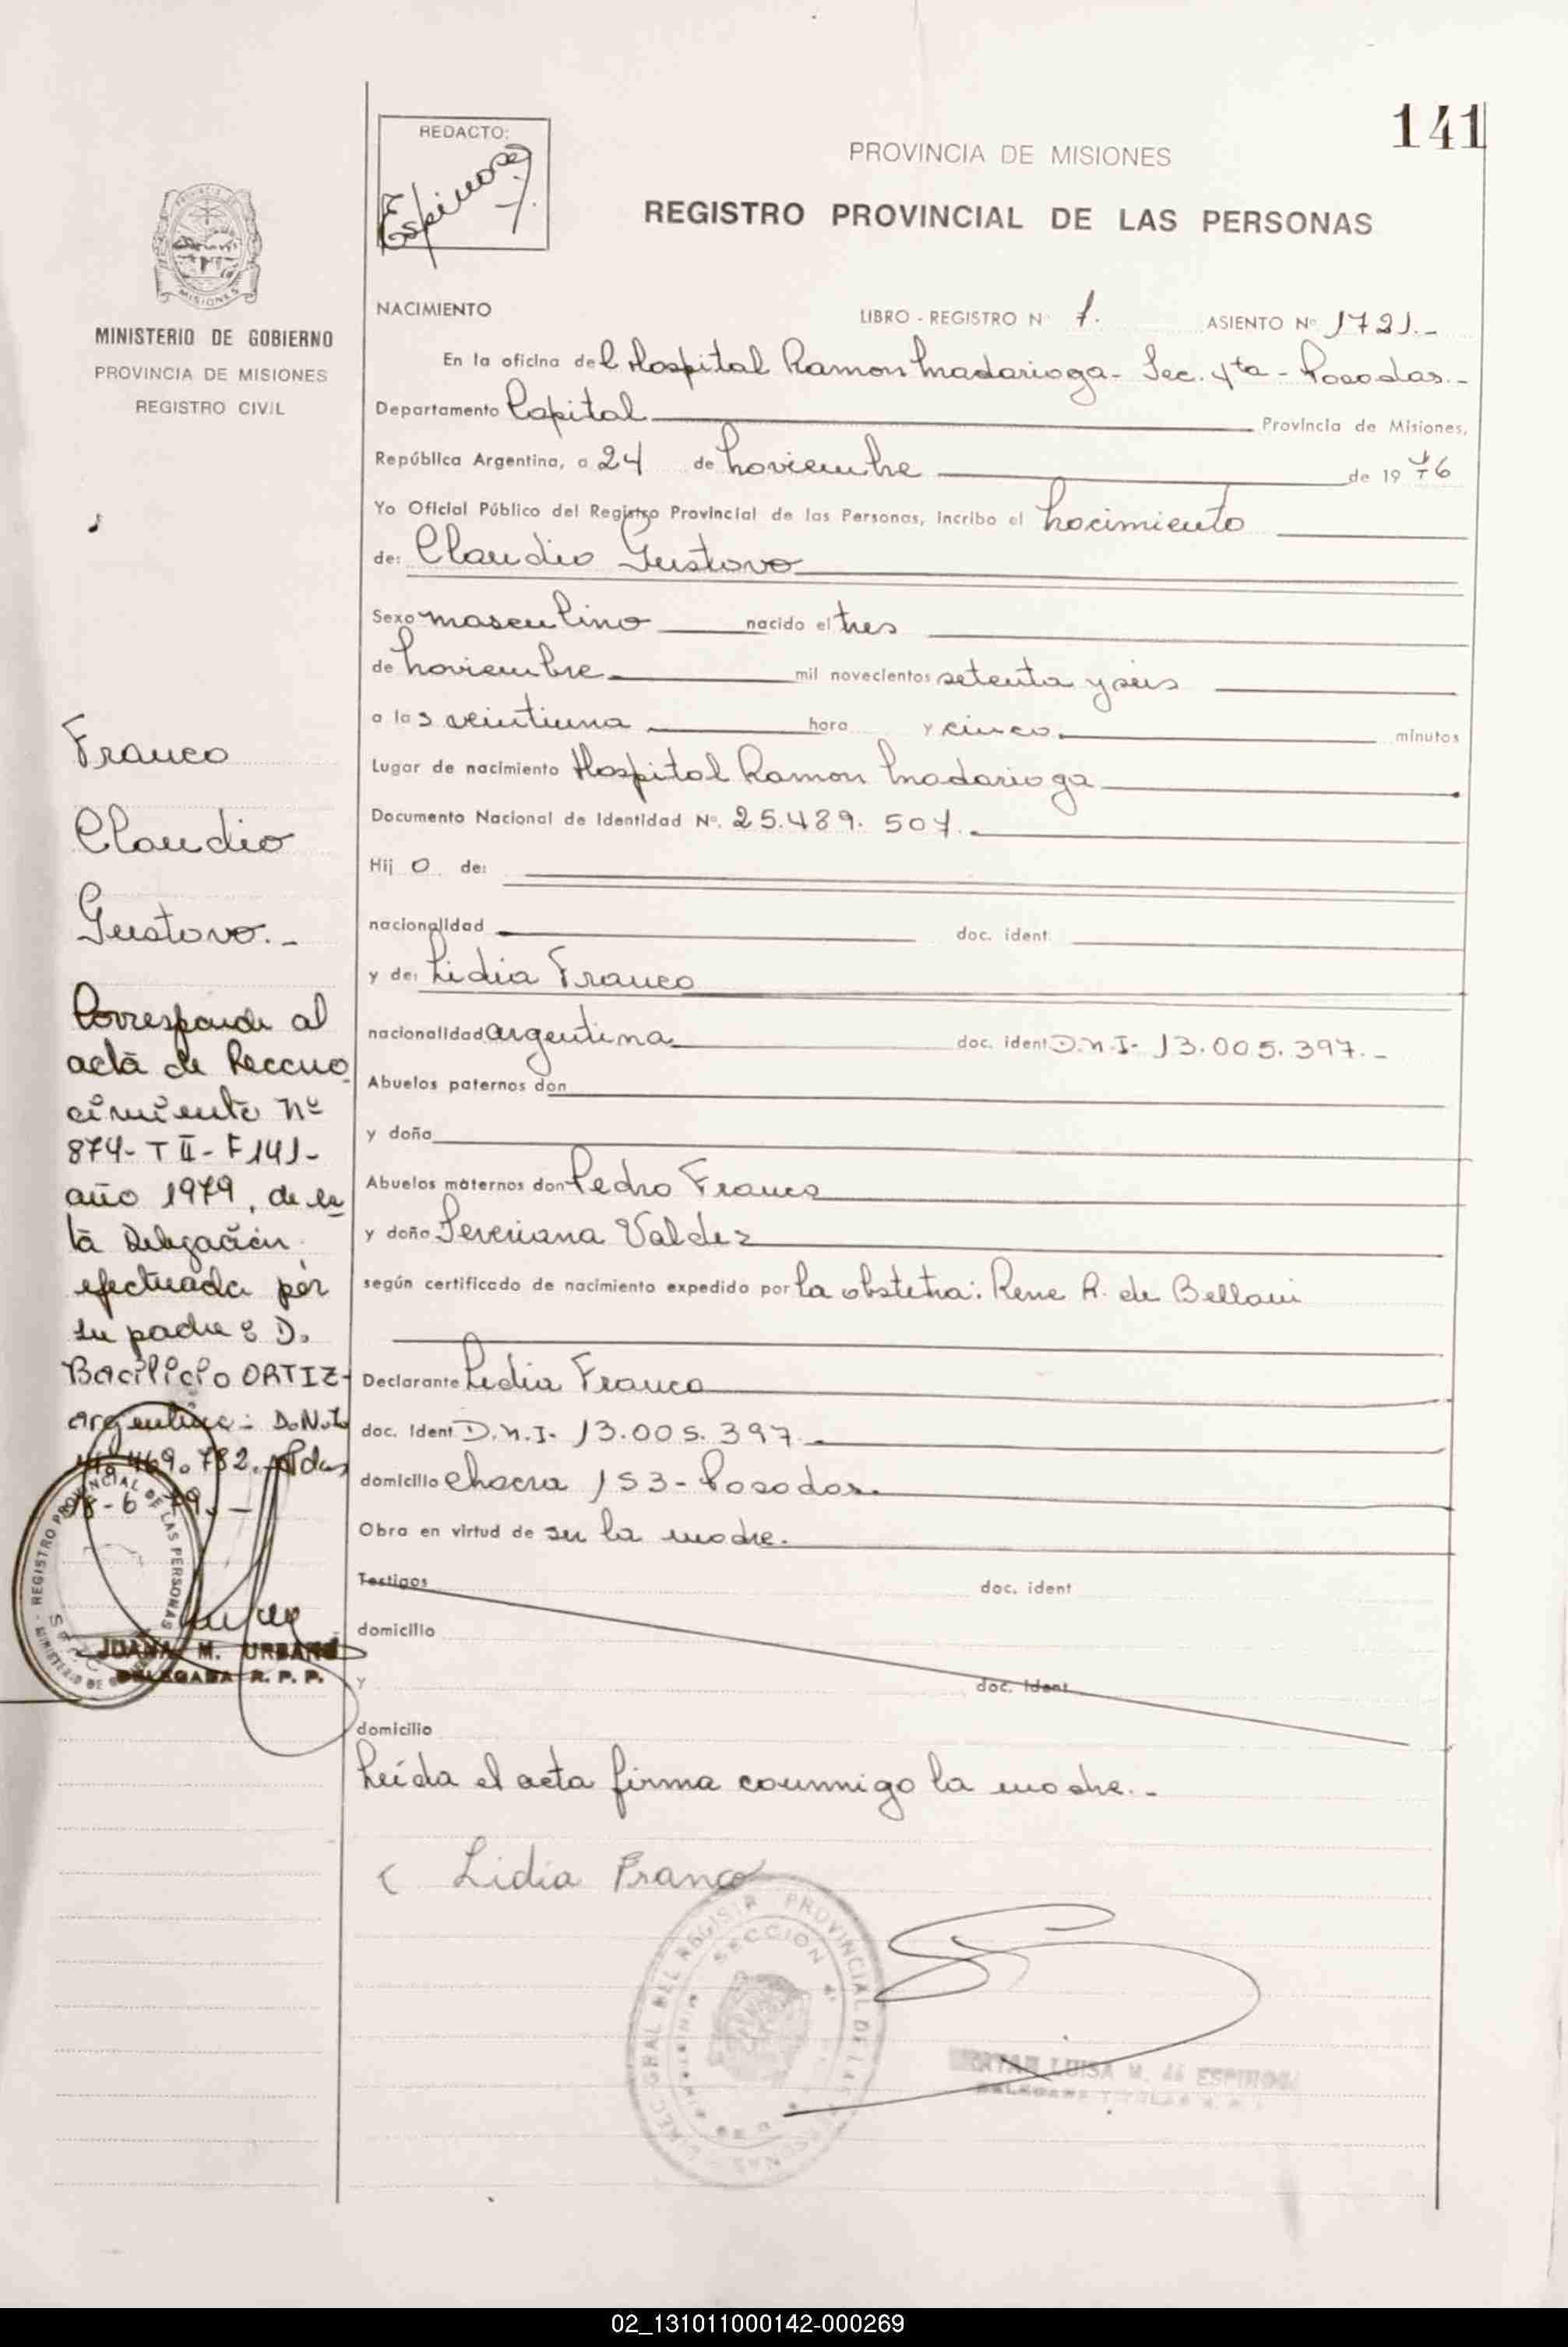 141
REDACTO:
Espinosa
PROVINCIA DE MISIONES
REGISTRO PROVINCIAL DE LAS PERSONAS
MISIONES
MINISTERIO DE GOBIERNO
PROVINCIA DE MISIONES
REGISTRO CIVIL
NACIMIENTO LIBRO - REGISTRO Nº 1. ASIENTO Nº 1721.-
En la oficina del Hospital Ramon Madariaga - Sec. 4ta - Posadas.-
Departamento Capital Provincia de Misiones,
República Argentina, a 24 de Noviembre de 1976
Yo Oficial Público del Registro Provincial de las Personas, incribo el Nacimiento
de: Claudio Gustavo
Sexo masculino nacido el tres
de Noviembre mil novecientos setenta y seis
a las veintiuna hora y cinco minutos
Lugar de nacimiento Hospital Ramon Madariaga
Documento Nacional de Identidad Nº. 25.489.507.
Hijo de:
nacionalidad doc. ident.
y de: Lidia Franco
nacionalidad argentina doc. ident D.N.I- 13.005.397.-
Abuelos paternos don
y doña
Abuelos maternos don Pedro Franco
y doña Severiana Valdez
según certificado de nacimiento expedido por la obstetra: Rene R. de
Declarante Lidia Franco
doc. Ident D.N.I- 13.005.397.
domicilio chacra 153 - Posadas.
Obra en virtud de ser la madre.
Testigos doc. ident
domicilio
y doc. ident
domicilio
Leída el acta firma conmmigo la madre.-
Lidia Franco
DIREC. GRAL DEL REGISTR PROVINCIAL DE LAS PERSONAS
SECCION 4ª
LUISA M. de ESPINOSA
Franco
Claudio
Gustavo.-
Corresponde al
acta de Recono
cimiento Nº
874- T II- F 141-
año 1979, de es
ta Delegación
efectuada por
su padre: D.
Bacilicio ORTIZ-
argentino: D.N.I.
469.782. Pdas
18-6-79.-
REGISTRO PROVINCIAL DE LAS PERSONAS
JUANA M. URBANO
DELEGADA R. P. P.
02_131011000142-000269